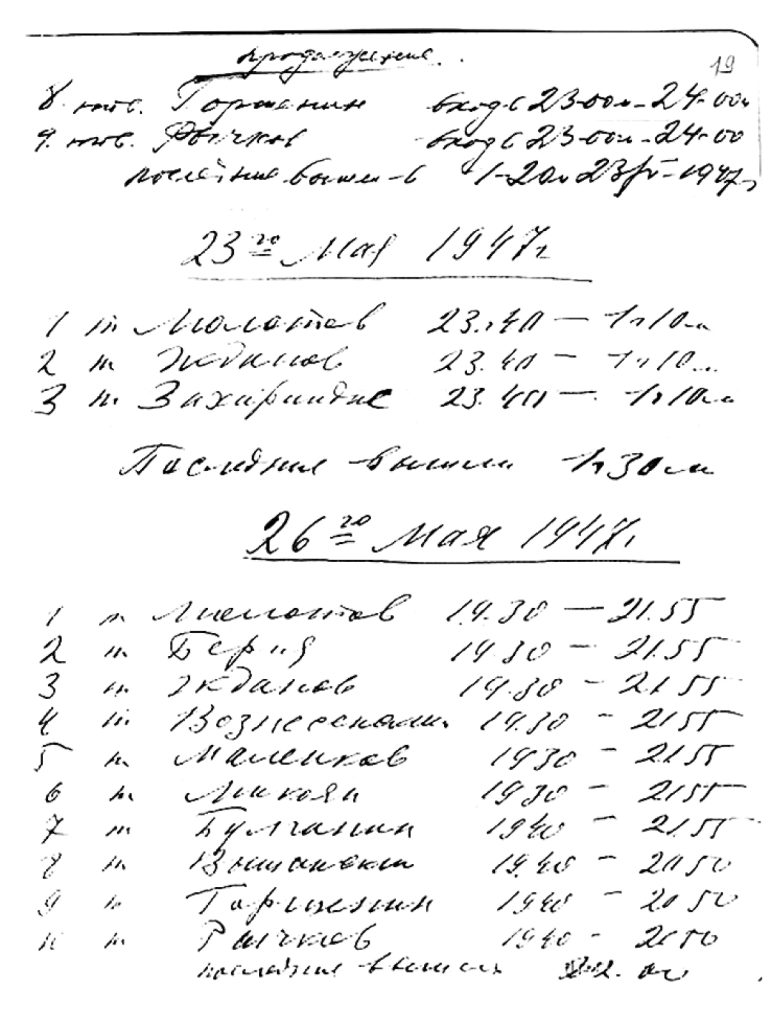 продолжение
19
8. тов. Горшенин вход в 23-00м - 24-00м
9. тов. Рычков вход в 23-00м - 24-00
последние вышли в 1-20м 23/V-1947г.
23го Мая 1947г
1 т Молотов 23.40 — 1ч10м
2 т Жданов 23.40 — 1ч10м
3 т Захариадис 23.40 — 1ч10м
Последние вышли 1ч30м
26го Мая 1947г.
1 т Молотов 19.30 — 21.55
2 т Берия 19 30 — 21.55
3 т Жданов 19.30 — 21 55
4 т Вознесенский 19.30 — 21 55
5 т Маленков 19 30 — 21 55
6 т Микоян 19 30 — 21 55
7 т Булганин 19 40 — 21.55
8 т Вышинский 19.40 — 20 50
9 т Горшенин 19 40 — 20 50
10 т Рычков 19 40 — 20 50
последние вышли 22.00